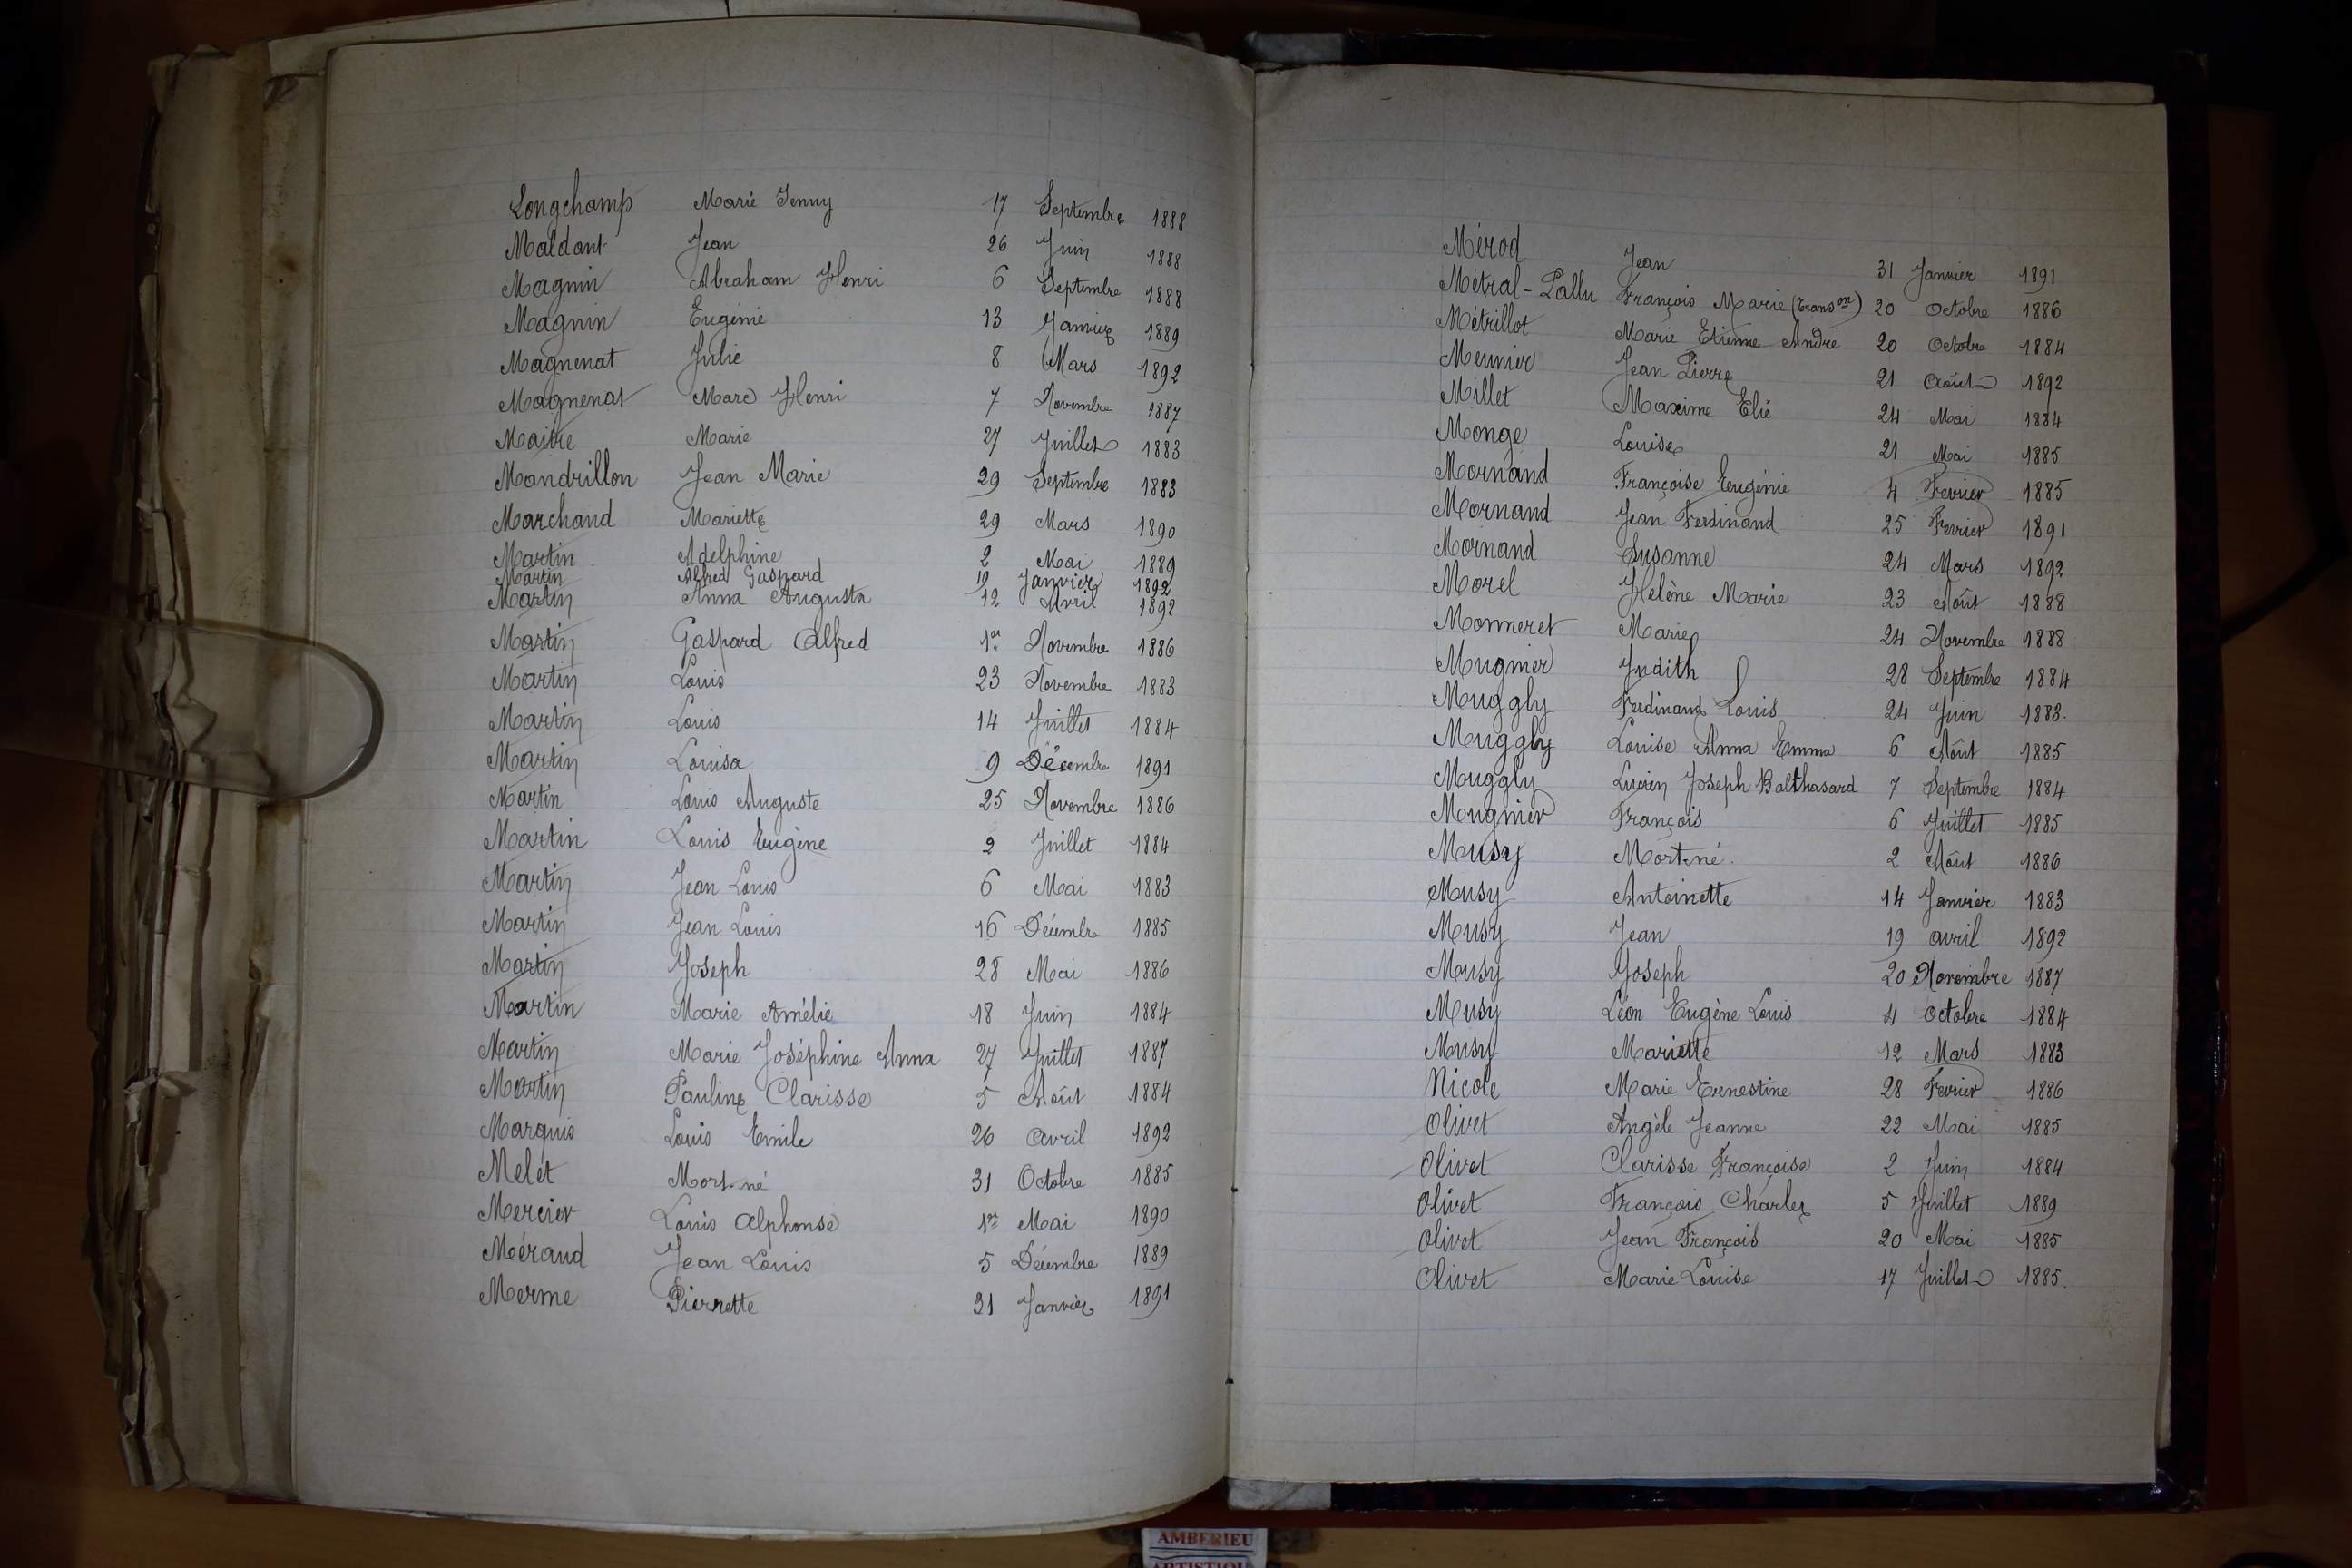 Longchamp Marie Jenny 17 Septembre 1888
Maldant Jean 26 Juin 1888
Magnin Abraham Henri 6 Septembre 1888
Magnin Eugénie 13 Janvier 1889
Magnenat Julie 8 Mars 1892
Magnenat Marc Henri 7 Novembre 1887
Maitre Marie 27 Juillet 1883
Mandrillon Jean Marie 29 Septembre 1883
Marchand Mariette 29 Mars 1890
Martin Adelphine 2 Mai 1889
Martin Alfred Gaspard 19 Janvier 1892
Martin Anna Augusta 12 Avril 1892
Martin Gaspard Alfred 1er Novembre 1886
Martin Louis 23 Novembre 1883
Martin Louis 14 Juillet 1884
Martin Louisa 9 Décembre 1891
Martin Louis Auguste 25 Novembre 1886
Martin Louis Eugène 2 Juillet 1884
Martin Jean Louis 6 Mai 1883
Martin Jean Louis 16 Décembre 1885
Martin Joseph 28 Mai 1886
Martin Marie Amélie 18 Juin 1884
Martin Marie Joséphine Anna 27 Juillet 1887
Martin Pauline Clarisse 5 Août 1884
Marquis Louis Emile 26 Avril 1892
Melet Mort-né 31 Octobre 1885
Mercier Louis Alphonse 1er Mai 1890
Méraud Jean Louis 5 Décembre 1889
Merme Pierrette 31 Janvier 1891
Mérod Jean 31 Janvier 1891
Métral-Lallu François Marie (Transon) 20 Octobre 1886
Métrillot Marie Etienne André 20 Octobre 1884
Meunier Jean Pierre 21 Août 1892
Millet Maxime Elié 24 Mai 1884
Monge Louise 21 Mai 1885
Mornand Françoise Eugénie 4 Fevrier 1885
Mornand Jean Ferdinand 25 Fevrier 1891
Mornand Susanne 24 Mars 1892
Morel Helène Marie 23 Août 1888
Monneret Marie 24 Novembre 1888
Mugnier Judith 28 Septembre 1884
Muggly Ferdinand Louis 24 Juin 1883.
Muggly Louise Anna Emma 6 Août 1885
Muggly Lucien Joseph Balthasard 7 Septembre 1884
Mugnier François 6 Juillet 1885
Musy Mort-né. 2 Août 1886
Musy Antoinette 14 Janvier 1883
Musy Jean 19 avril 1892
Musy Joseph 20 Novembre 1887
Musy Léon Eugène Louis 4 Octobre 1884
Musy Mariette 12 Mars 1883
Nicole Marie Ernestine 28 Fevrier 1886
Olivet Angèle Jeanne 22 Mai 1885
Olivet Clarisse Françoise 2 Juin 1884
Olivet François Charles 5 Juillet 1889
Olivet Jean François 20 Mai 1885
Olivet Marie Louise 17 Juillet 1885.
AMBERIEU